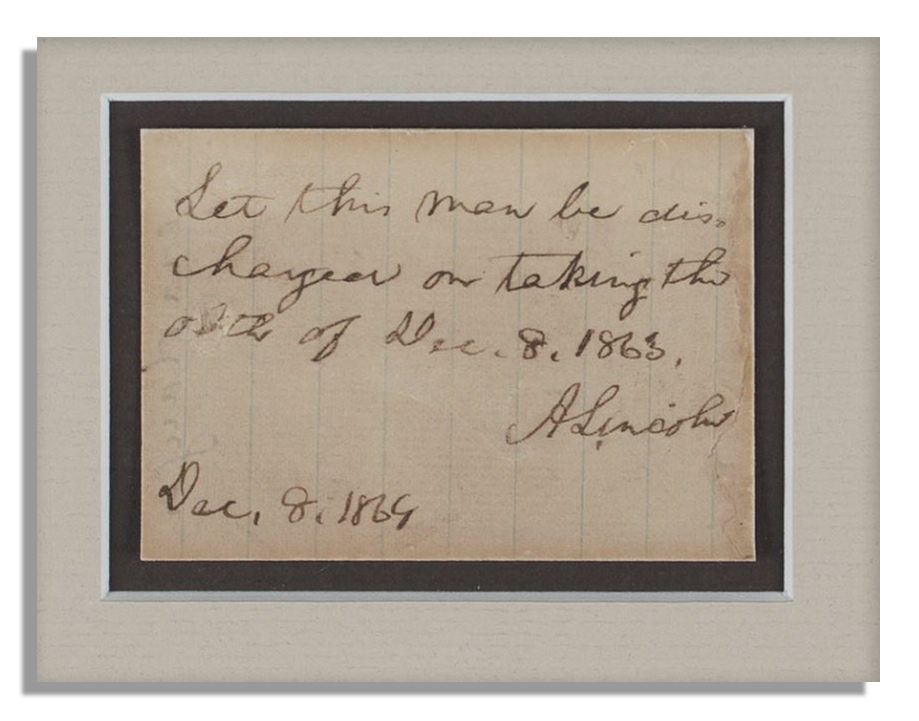 Let this man be dis-
charged on taking the
oath of Dec. 8. 1863.
A Lincoln
Dec. 8. 1864